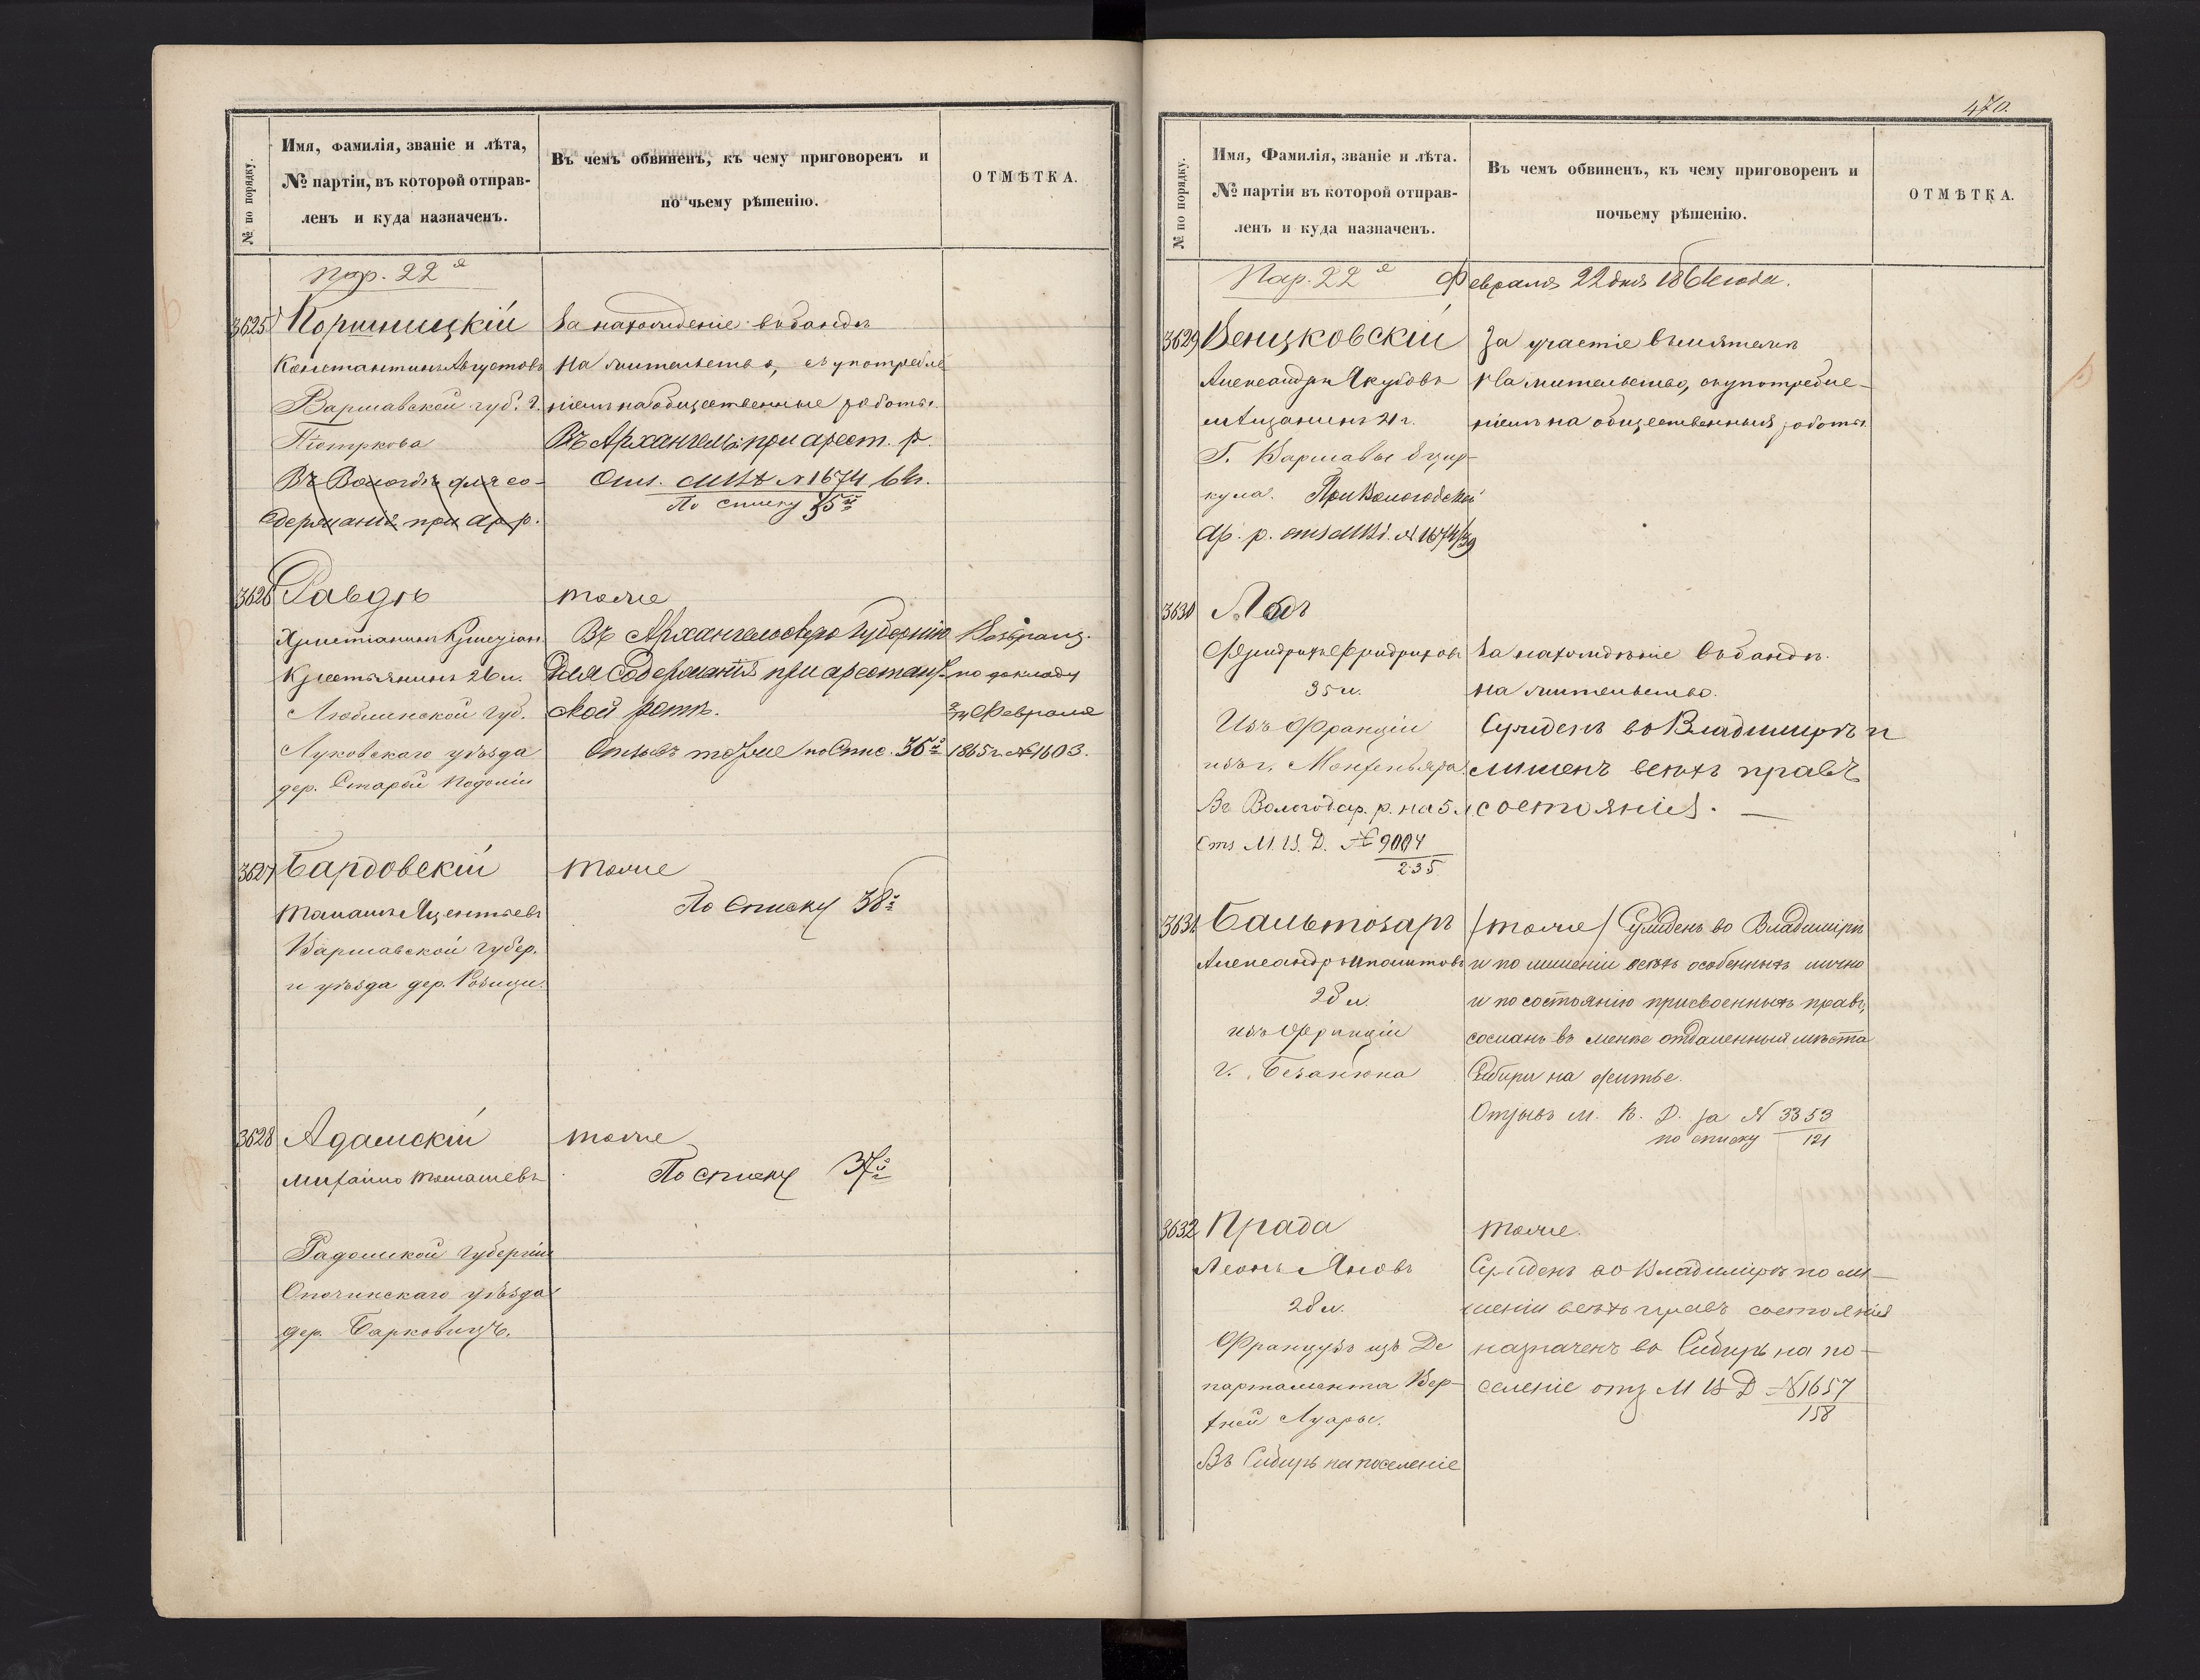 № по порядку.
Имя, фамилія, званіе и лѣта,
№ партіи, въ которой отправ-
ленъ и куда назначенъ.
Въ чемъ обвиненъ, къ чему приговоренъ и
по чьему рѣшенію.
ОТМѢТКА.
Пар. 22я
3625
Константинъ Августовъ
Варшавской губ. г.
Піотркова
Въ Вологдѣ для со-
держанія при ар. р.
За нахожденіе въ бандѣ
На жительство, съ употребле
ніемъ на общественные работы.
Въ Архангель. при арест. р.
Отз. МВД № 1674
По списку 35й
3626
Равдо
Крестьянинъ 26 л.
Люблинской губ.
Луковскаго уѣзда
дер. Старой Подоліи
тоже
Въ Архангельскую губернію
для содержанія при арестант-
ской ротѣ.
Отзывъ тотже по Спис. 36й
Возвращ.
по докладу
Февраля
1865 г. № 1603.
3627
Бардовскій
Томашъ Яцентьевъ
Варшавской губер.
и уѣзда дер.
тоже
По списку 38й
3628
Адамскій
Михайло Томашевъ
Радомской губерніи
Опочинскаго уѣзда
дер. Барковицъ.
тоже
По списку 37й
470.
№ по порядку.
Имя, Фамилія, званіе и лѣта.
№ партіи въ которой отправ-
ленъ и куда назначенъ.
Въ чемъ обвиненъ, къ чему приговоренъ и
почьему рѣшенію.
ОТМѢТКА.
Пар. 22я Февраля 22 дня 1864 года.
3629
Венцковскій
Александръ Якубовъ
мѣщанинъ 21 г.
Г. Варшавы 8 цир-
кула. При Вологодской
Ар. р. отз МВД. № 1674/39
За участіе въ мятежѣ
На жительство, съ употребле-
ніемъ на общественныя работы
3630
Фридрихъ Фридриховъ
35 л.
Изъ Франціи
изъ г.
Въ Вологод ар. р. на 5 л.
Отз М. В. Д. № 9004
235
За нахожденіе въ бандѣ.
на жительство.
Сужденъ во Владимирѣ и
лишенъ всѣхъ правъ
состоянія. —
3631
Бальтозаръ
Александръ Иполитовъ
28 л.
изъ Франціи
г. Безансона
(тоже) Сужденъ во Владимірѣ
и по лишеніи всѣхъ особенныхъ лично
и по состоянію присвоенныхъ правъ,
сосланъ въ менѣе отдаленныя мѣста
Сибири на житье.
Отзывъ М. В. Д. за № 3353
по списку 121
3632
Прада
Леонъ Яновъ
28 л.
Французъ изъ Де
партамента Вер-
хней Луары.
Въ Сибирь на поселеніе
тоже.
Сужденъ во Владимірѣ по ли-
шеніи всѣхъ правъ состоянія
назначенъ въ Сибирь на по-
селеніе отз М В Д № 1657
158